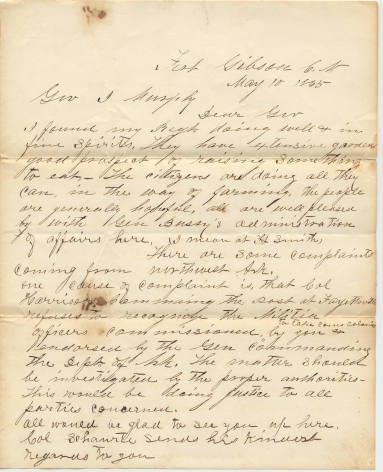 Fort Gibson C. N
May 10 1865
Gov I Murphy
Dear Gov
I found my Regt doing well & in
fine spirits, They have extensive gardens
good prospect of raising something
to eat - The citizens are doing all they
can, in the way of farming, the people
are generally hopeful, all are well pleased
by with Gen Bussy's administration
of affairs here, I mean at Ft Smith,
There are some complaints
coming from northwest Ark.
one cause of complaint is, that Col
Harrison Commanding the post at Fayetteville
refuses to recognize the Militia
officers commissioned by you &
to take some colonies
endorsed by the Gen Commanding
the Dept of Ark. The matter should
be investigated by the proper authorities -
This would be doing justice to all
parties concerned.
all would be glad to see you up here.
Col sends his kindest
regards to you